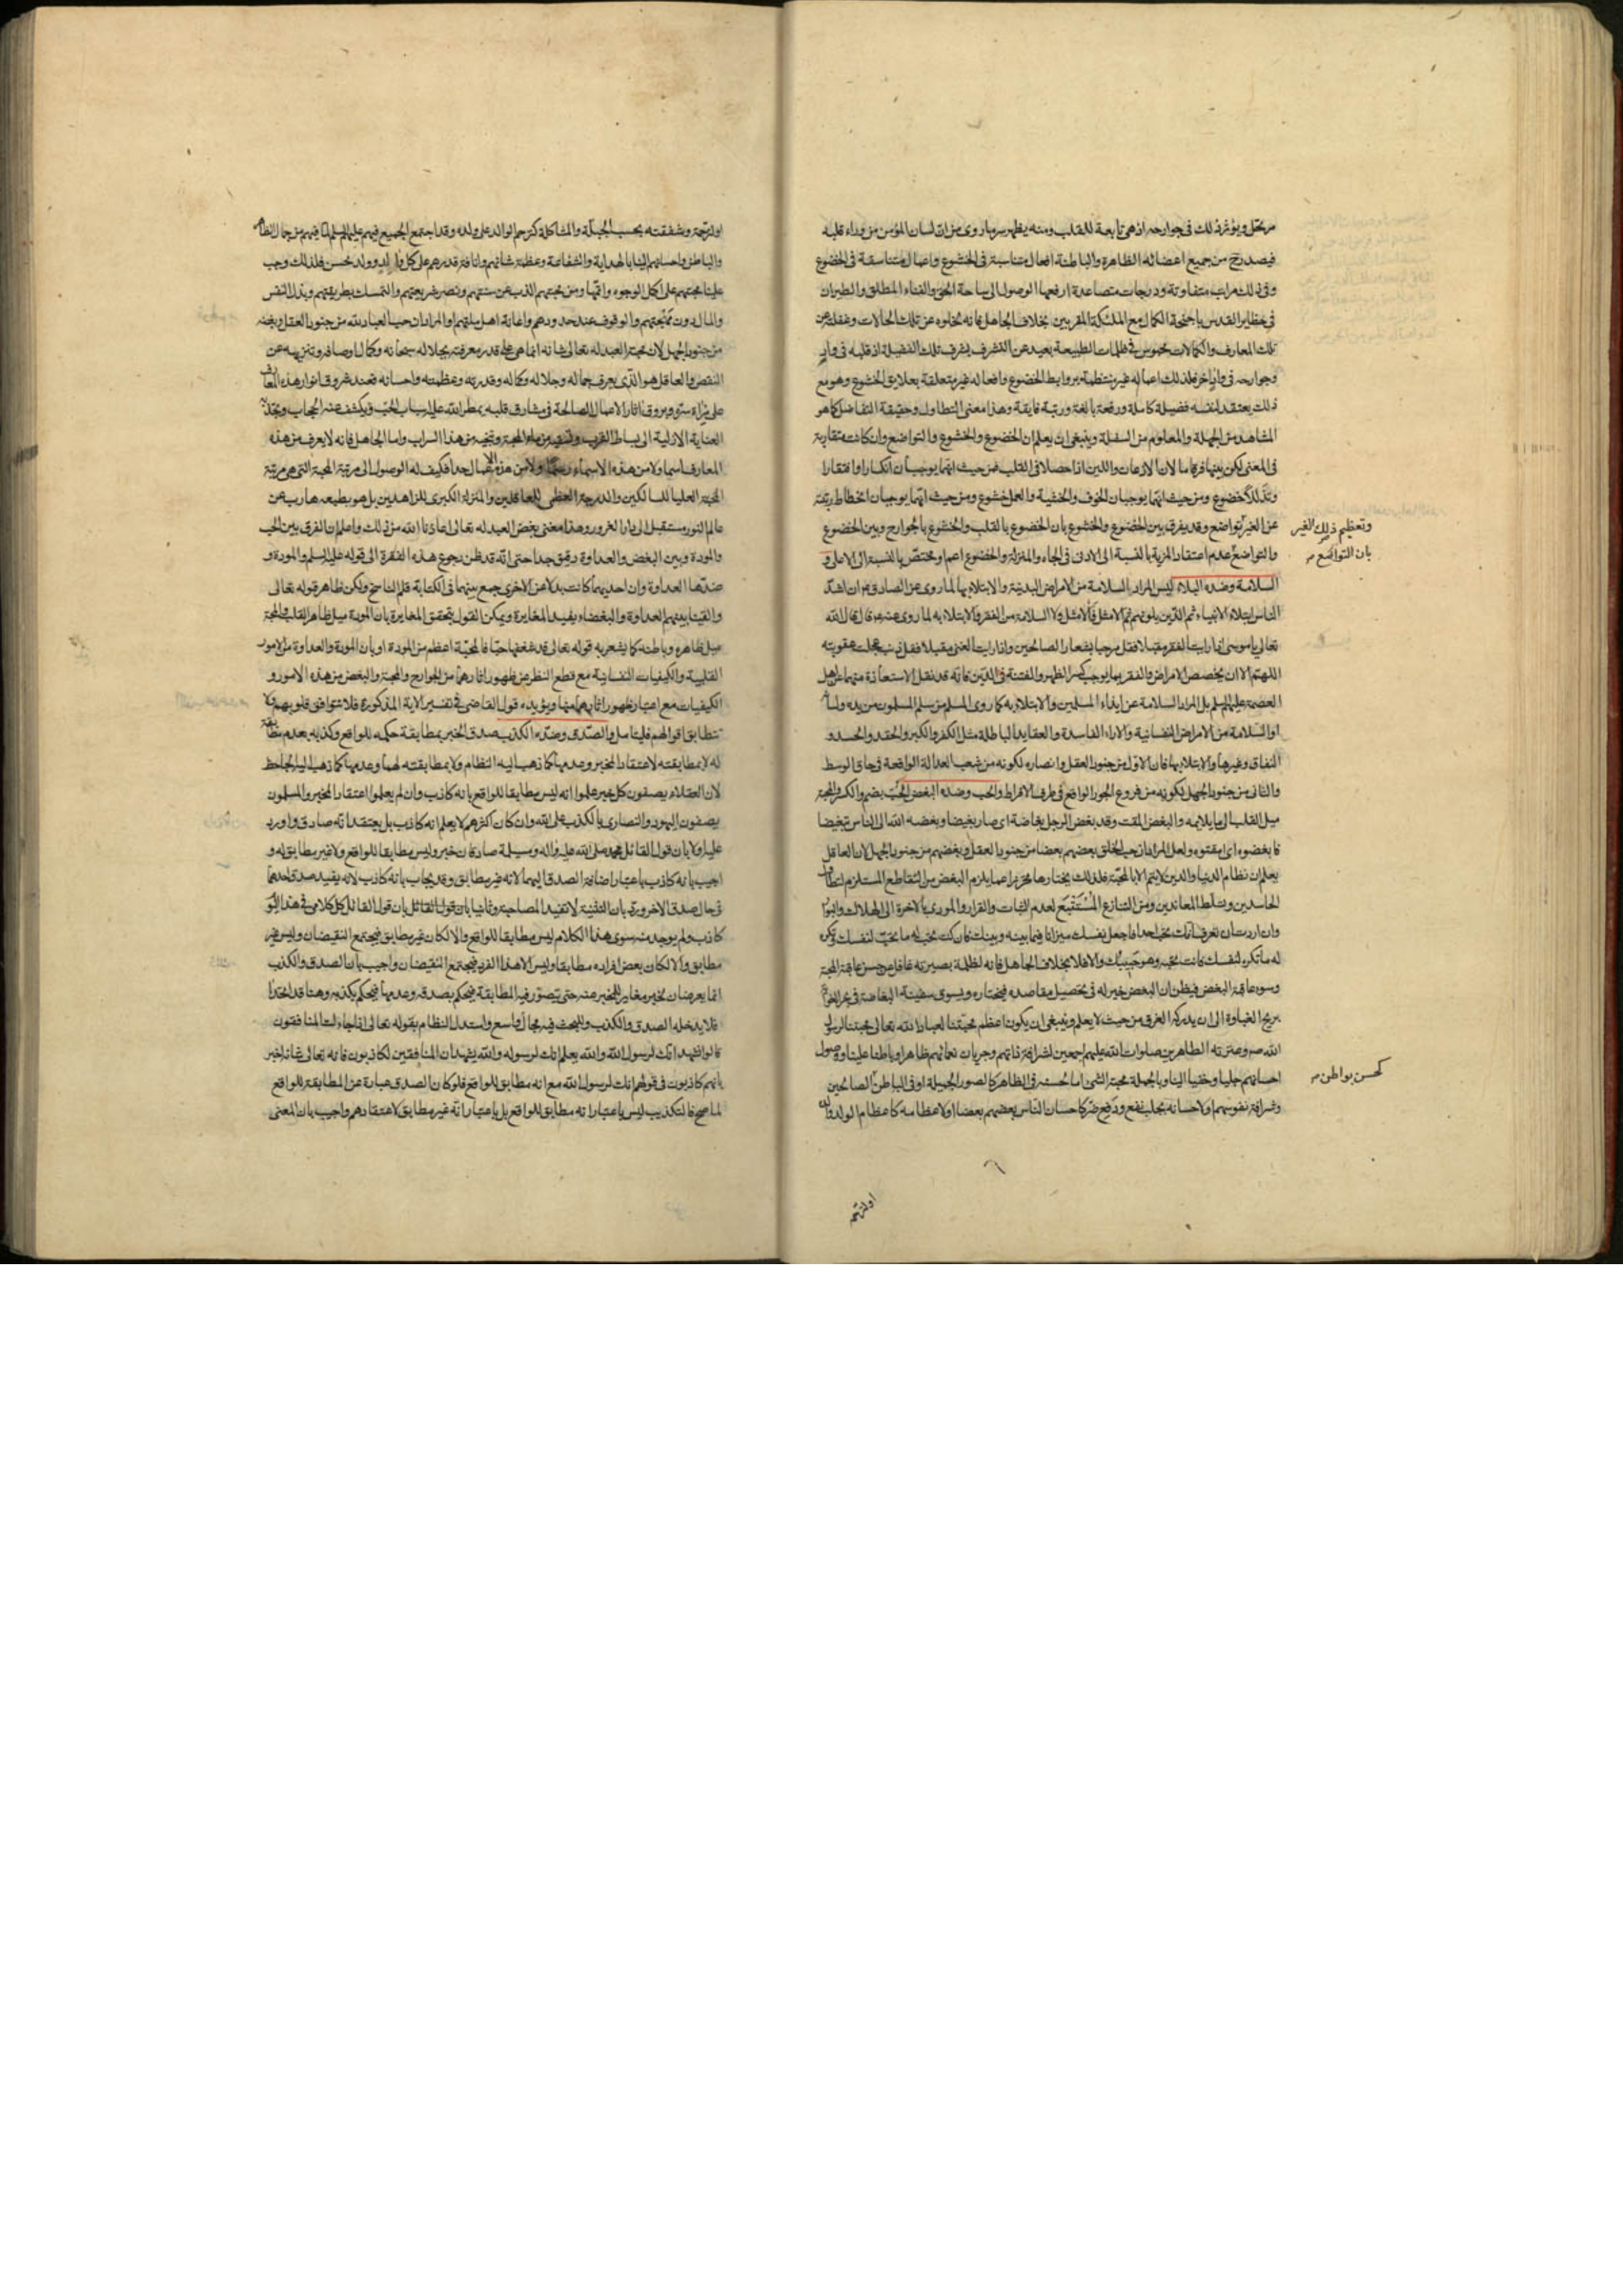 مرتحل ويؤثر ذلك في جوارحه اذ هي تابعة للقلب ومنه يظهر سر ما روى من ان لسان المؤمن من وراء قلبه
فيصدر من جميع اعضائه الظاهرة والباطنة افعال متناسبة في الخشوع واعمال متناسقة في الخضوع
وفي ذلك مراتب متفاوتة ودرجات متصاعدة ارفعها الوصول الى ساحة الحق والفناء المطلق والطيران
في حظاير القدس باجنحة الكمال مع الملئكة المقربين بخلاف الجاهل فانه لخلوه عن تلك الحالات وغفلته عن
تلك المعارف والكمالات محبوس في ظلمات الطبيعة بعيد عن التشرف بشرف تلك الفضيلة اذ قلبه في واد
وجوارحه في واد اخر فلذلك اعماله غير منتظمة بروابط الخضوع وافعاله غير متعلقة بعلايق الخشوع وهو مع
ذلك يعتقد لنفسه فضيلة كاملة ورفعة بالغة ورتبة فايقة وهذا معنى التطاول وحقيقة التفاضل كما هو
المشاهد من الجهلة والمعلوم من السفلة وينبغي ان يعلم ان الخضوع والخشوع والتواضع وان كانت متقاربة
في المعنى لكن بينها فرق ما لان الاذعان واللين اذا حصلا في القلب فمن حيث انهما يوجبان انكسارا وافتقارا
وتذللا خضوع ومن حيث انهما يوجبان الخوف والخشية والعمل خشوع ومن حيث انهما يوجبان انحطاط رتبته
عن الغير تواضع وقد يفرق بين الخضوع والخشوع بان الخضوع بالقلب والخشوع بالجوارح وبين الخضوع
وتعظيم ذلك الغير
والتواضع عدم اعتقاد المزية بالنسبة الى الادنى في الجاه والمنزلة والخضوع اعم او مختص بالنسبة الى الاعلى و
بان التواضع صح
السلامة وضده البلاء ليس المراد السلامة من الامراض البدنية والابتلاء بها لما روى عن الصادق ع ان اشد
الناس ابتلاء الانبياء ثم الذين يلونهم ثم الامثل فالامثل ولا السلامة من الفقر والابتلاء به لما روى عنه ع قال قال الله
تعالى يا موسى اذا رايت الفقر مقبلا فقل مرحبا بشعار الصالحين واذا رايت الغنى مقبلا فقل ذنب عجلت عقوبته
اللهم الا ان يخصص الامراض والفقر بما يوجب كسر الظهر والفتنة في الدين فانه قد نقل الاستعاذة منهما عن اهل
العصمة عليهم السلم بل المراد السلامة عن ايذاء المسلمين والابتلاء به كما روى المسلم من سلم المسلمون من يده ولسانه
او السلامة من الامراض النفسانية والاراء الفاسدة والعقايد الباطلة مثل الكفر والكبر والحقد والحسد و
النفاق وغيرها والابتلاء بها فان الاول من جنود العقل وانصاره لكونه من شعب العدالة الواقعة في حاق الوسط
والثاني من جنود الجهل لكونه من فروع الجور الواقع في طرف الافراط والحب وضده البغض الحب بضم والكسر المحبة
ميل القلب الى ما يلايمه والبغض المقت وقد بغض الرجل بغاضة اى صار بغيضا وبغضه الله الى الناس تبغيضا
فابغضوه اى مقتوه ولعل المراد ان حب الخلق بعضهم بعضا من جنود العقل وبغضهم من جنود الجهل لان العاقل
يعلم ان نظام الدنيا والدين لا يتم الا بالمحبة فلذلك يختارها تحرزا عما يلزم البغض من التقاطع المستلزم لتطاول
الحاسدين وتسلط المعاندين ومن التنازع المستتبع لعدم الثبات والقرار والمؤدى بالاخرة الى الهلاك والبوار
وان اردت ان تعرف انك تحب احدا فاجعل نفسك ميزانا فيما بينه وبينك فان كنت تحب له ما تحب لنفسك وتكره
له ما تكره لنفسك فانت تحبه وهو حبيبك والا فلا بخلاف الجاهل فانه لظلمة بصيرته غافل عن حسن عاقبة المحبة
وسوء عاقبة البغض فيظن ان البغض خير له في تحصيل مقاصده فيختاره ويسوى سفينة البغاضة في بحر الغواية
بريح الغباوة الى ان يدركه الغرق من حيث لا يعلم وينبغي ان يكون اعظم محبتنا لعباد الله تعالى محبتنا لرسول
الله ص وعترته الطاهرين صلوات الله عليهم اجمعين لشرافة ذاتهم وجريان نعمائهم ظاهرا وباطنا علينا ووصول
احسانهم جليا وخفيا الينا وبالجملة محبة الشئ اما لحسنه في الظاهر كالصور الجميلة او في الباطن الصالحين
كحسن بواطن صح
وشرافة نفوسهم او لاحسانه بجلب نفع ودفع ضر كاحسان الناس بعضهم بعضا او لاعظامه كاعظام الولد والده
او لترحمه
او لترحمه وشفقته بحسب الجبلة والمشاكلة كترحم الوالد على ولده وقد اجتمع الجميع فيهم عليهم السلم لما فيهم من جمال الظاهر
والباطن واحسانهم الينا بالهداية والشفاعة وعظمة شانهم وانافة قدرهم على كل والد وولد حسن فلذلك وجب
علينا محبتهم على اكمل الوجوه واتمها ومن محبتهم الذب عن سنتهم ونصر شريعتهم والتمسك بطريقتهم وبذل النفس
والمال دون مهجتهم والوقوف عند حدودهم واعانة اهل ملتهم او المراد ان حب العباد لله من جنود العقل وبغضه
من جنود الجهل لان محبة العبد له تعالى شانه انما هي على قدر معرفته بجلاله سبحانه وكمال اوصافه وتنزيهه عن
النقص والعاقل هو الذى يعرف جماله وجلاله وكماله وقدرته وعظمته واحسانه فعند شروق انوار هذه المعارف
على مراة سره وبروق اثار الاعمال الصالحة في مشارق قلبه يمطر الله عليه سحاب الحب ويكشف عنه الحجاب ويجذبه
العناية الازلية الى بساط القرب وتسقيه من ماء المحبة وتنجيه من هذا السراب واما الجاهل فانه لا يعرف من هذه
المعارف اسما ولا من هذه الاسماء رسما ولا من هذه الاعمال حدا فكيف له الوصول الى مرتبة المحبة التي هي مرتبة
المحبة العليا للسالكين والدرجة العظمى للعاقلين والمنزلة الكبرى للزاهدين بل هو بطبعه هارب عن
عالم النور مستقبل الى دار الغرور وهذا معنى بغض العبد له تعالى اعاذنا الله من ذلك واعلم ان الفرق بين الحب
والمودة وبين البغض والعداوة دقيق جدا حتى انه قد ظن رجوع هذه الفقرة الى قوله عليه السلم والمودة و
ضدها العداوة وان احديهما كانت بدلا عن الاخرى جمع بينهما في الكتابة قلم الناسخ ولكن ظاهر قوله تعالى
والقينا بينهم العداوة والبغضاء يفيد المغايرة ويمكن القول بتحقق المغايرة بان المودة ميل ظاهر القلب والمحبة
ميل ظاهره وباطنه كما يشعر به قوله تعالى قد شغفها حبا فالمحبة اعظم من المودة او بان المودة والعداوة من الامور
القلبية والكيفيات النفسانية مع قطع النظر عن ظهور اثارهما من الجوارح والمحبة والبغض من هذه الامور و
الكيفيات مع اعتبار ظهور اثارهما منها ويؤيده قول القاضي في تفسير الاية المذكورة فلا تتوافق قلوبهم ولا
تتطابق اقوالهم فليتامل والصدق وضده الكذب صدق الخبر بمطابقة حكمه للواقع وكذبه بعدم مطابقته
له لا بمطابقته لاعتقاد المخبر وعدمها كما ذهب اليه النظام ولا بمطابقته لهما وعدمها كما ذهب اليه الجاحظ
لان العقلاء يصفون كل خبر علموا انه ليس مطابقا للواقع بانه كاذب وان لم يعلموا اعتقاد المخبر والمسلمون
يصفون اليهود والنصارى بالكذب على الله وان كان اكثرهم لا يعلم انه كاذب بل يعتقد انه صادق واورد
عليه اولا بان قول القائل محمد صلى الله عليه واله ومسيلمة صادقان خبر وليس مطابقا للواقع ولا غير مطابق له و
اجيب بانه كاذب باعتبار اضافة الصدق اليهما لانه غير مطابق وقد يجاب بانه كاذب لانه يفيد صدق احدهما
في حال صدق الاخر ورد بان التثنية لا تفيد المصاحبة وثانيا بان قول القائل بان قول القائل كل كلامي في هذا اليوم
كاذب ولم يوجد منه سوى هذا الكلام ليس مطابقا للواقع والا لكان غير مطابق فيجتمع النقيضان وليس غير
مطابق والا لكان بعض افراده مطابقا وليس الا هذا الفرد فيجتمع النقيضان واجيب بان الصدق والكذب
انما يعرضان لخبر مغاير للمخبر عنه حتى يتصور فيه المطابقة فيحكم بصدقه وعدمها فيحكم بكذبه وهنا قد اتحدا
فلا يدخله الصدق والكذب وللبحث فيه مجال واسع واستدل النظام بقوله تعالى اذا جاءك المنافقون
قالوا نشهد انك لرسول الله والله يعلم انك لرسوله والله يشهد ان المنافقين لكاذبون فانه تعالى شانه اخبر
بانهم كاذبون في قولهم انك لرسول الله مع انه مطابق للواقع فلو كان الصدق عبارة عن المطابقة للواقع
لما صح فالتكذيب ليس باعتبار انه مطابق للواقع بل باعتبار انه غير مطابق لاعتقادهم واجيب بان المعنى